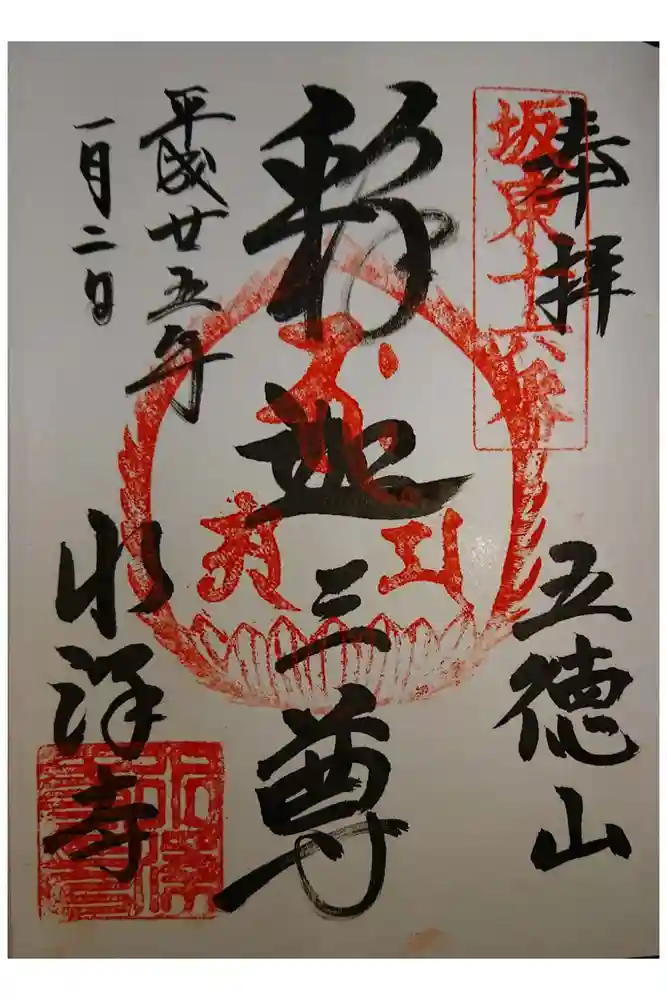 奉拝
坂東十六番
五徳山
釈迦三尊
平成廿五年
一月二日
水澤寺